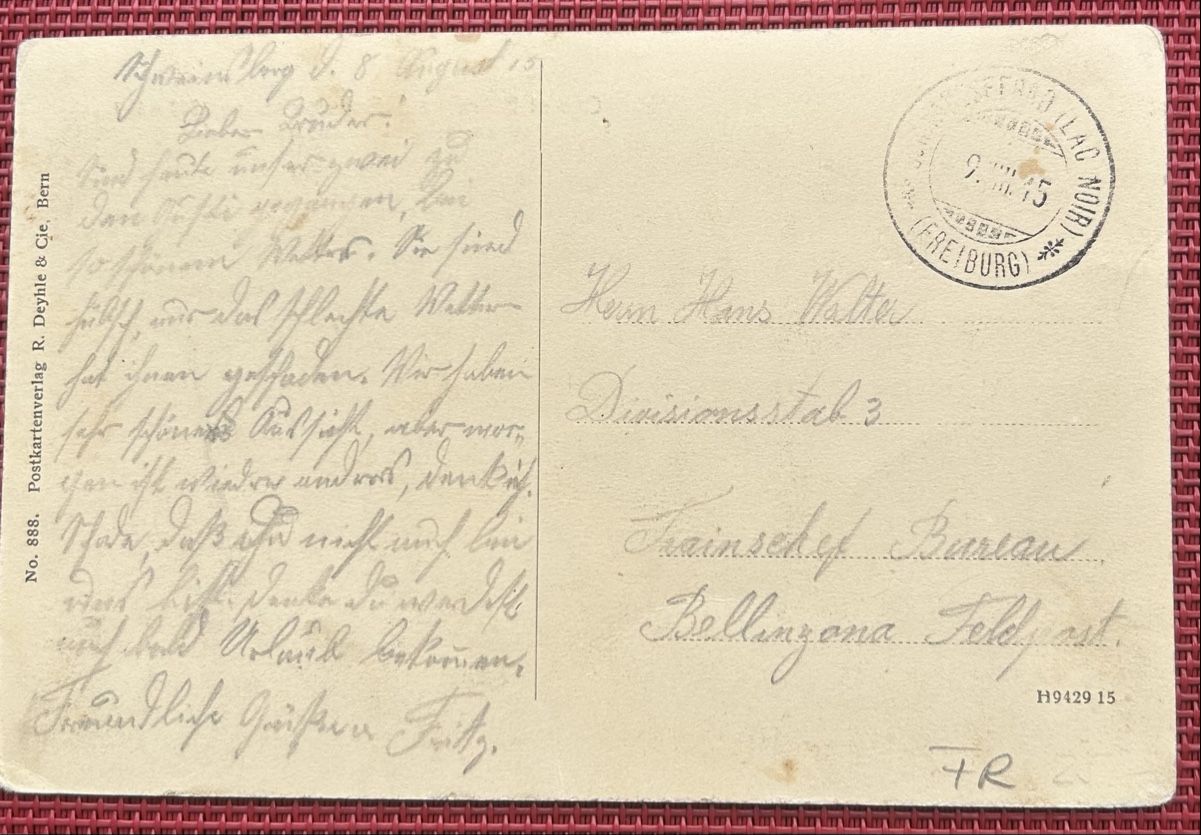 Schweinsberg d. 8 August 15
Lieber Bruder!
Sind heute unser zwei zu
den gegangen, bei
so schönem Wetter. Sie sind
hübsch, nur das schlechte Wetter
hat ihnen geschaden. Wir haben
sehr schöne Aussicht, aber mor-
gen ist wieder anders, denk ich.
Schade, daß Du nicht auch bei
uns bist. Denke du werdest
auch bald Urlaub bekommen.
Freundliche Grüße Fritz.
No. 888. Postkartenverlag R. Deyhle & Cie, Bern
(LAC NOIR)
9. VIII. 15
(FREIBURG)
Herrn Hans Walter
Divisionsstab 3
Trainschef Bureau
Bellinzona Feldpost.
H9429 15
FR